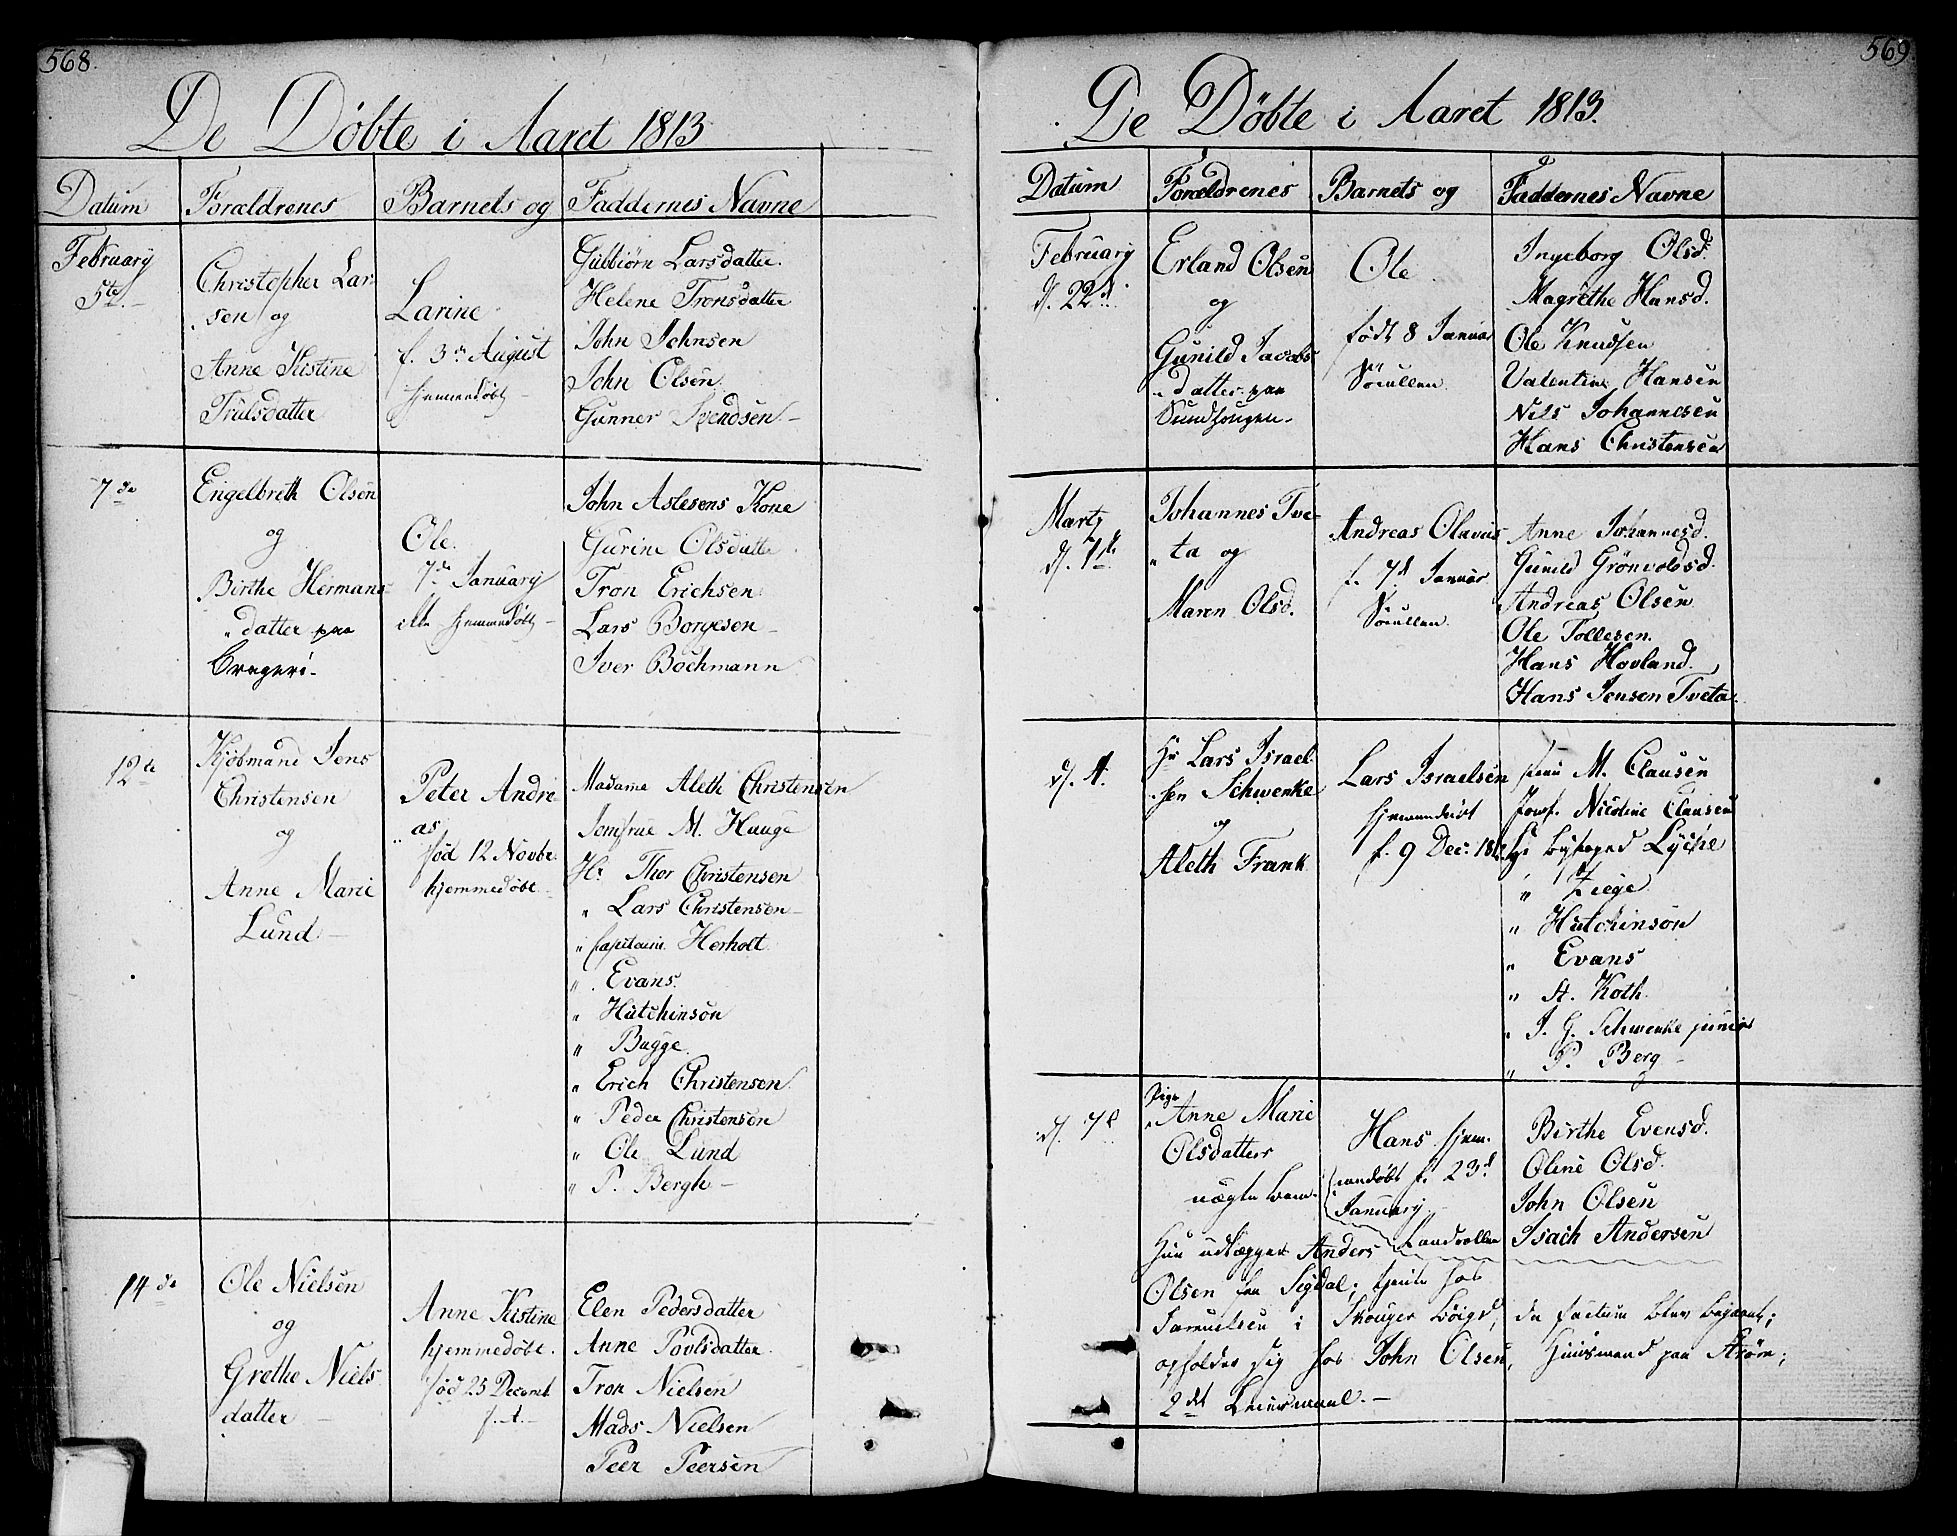 568.
De Döbte i Aaret 1813
Datum Forældrenes Barnets og Faddernes Navne
February
5te
Christopher Lar
sen og
Anne Kistine
Trulsdatter
Larine
f. 3de August
hjemmedöbt
Gulbiörn Larsdatter
Helene Tronsdatter
John Johnsen
John Olsön
Gunner Svendsen
7de
Engelbreth Olsön
og
Birthe Hermans
datter paa
Ole.
7de January
ikke hjemmedöbt
John Aslesens Kone
Gurine Olsdatter
Tron Erichsen
Lars Borgesen
Iver Bochmann
12te
Kjöbmand Jens
Christensen
og
Anne Marie
Lund
Peter Andre
as
föd 12 Novbr.
hjemmedöbt
Madame Aleth Christensen
Jomfrue M. Hauge
Hr Thor Christensen
" Lars Christensen
" Capitaine Herholt
" Evans
" Hutchinsön
" Bugge
" Erich Christensen
" Peder Christensön
" Ole Lund
" P. Bergh
14de
Ole Nielsen
og
Grethe Niels
datter
Anne Kistine
hjemmedöbt.
föd 25 Decemb
f. A.
Elen Pedersdatter
Anne Povlsdatter
Tron Nielsen
Mads Nielsen
Peer Peersen
569.
De Döbte i Aaret 1813.
Datum Forældrenes Barnets og Faddernes Navne
February
d. 22d
Erland Olsen
og
Gunild Jacobs
datter paa
Ole
födt 8 Januar
Ingeborg Olsd.
Magrethe Hansd.
Ole Knudsen
Valentin Hansen
Nils Johannesen
Hans Christensen
Marty
d. 1te
Johannes Tve
ta og
Maren Olsd.
Andreas Olavus
f. 7d Januar
Anne Johannesd.
Gunild Grönvoldsd.
Andreas Olsen
Ole Tollesen.
Hans Hovland
Hans Jensen Tveta
d. 4.
Hr Lars Israel
sen Schwenke
og
Aleth Frank
Lars Israelsen
hjemmedöbt
f. 9 Dec: 1812
Frue M. Clausen
Jomf. Nicoline Clausen
Hr Byfoged Lyche
" Ziege
" Hutchinson
" Evans
" St. Koth
" J. G. Schwenke junior
" P. Berg
d. 7d
Pige
Anne Marie
Olsdatters
uægte barn.
Hans hjem-
medöbt f. 23d
January
Birthe Evensd.
Olene Olsd.
John Olsen
Isach Andersen
Hun udlægger Anders Landvollen
Olsen fra Sigdal; tjente hos
Samuelsen i Skouger Böigd, da factum blev begaaet;
opholder sig hos John Olsen, Huusmand paa Ström;
2det Leiermaal.